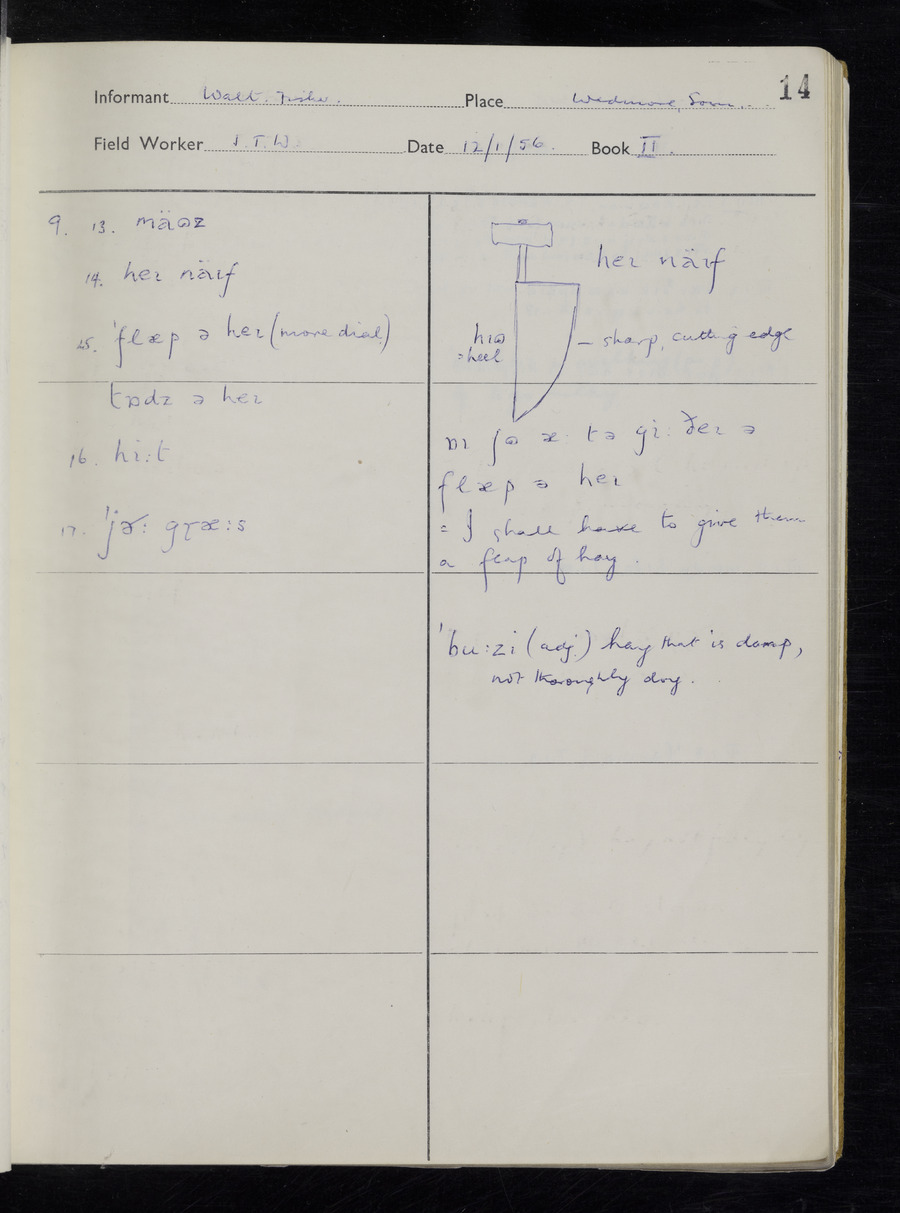 14
Informant Walt. Fisher. Place Wedmore, Som.
Field Worker J.T.W. Date 12/1/56. Book II.
9. 13. mäɷz
14. heɪ näɪf
15. ˈflæp ə heɪ (more dial.)
tɒdz ə heɪ
16. hi:t
17. ˈjɚ: gɽæ:s
heɪ näɪf
hɪɷ
= heel
— sharp, cutting edge
ɒɪ ʃɷ æ: tə gi: ðeɪ ə
flæp ə heɪ
= I shall have to give them
a flap of hay.
ˈbu:zi (adj.) hay that is damp,
not thoroughly dry.